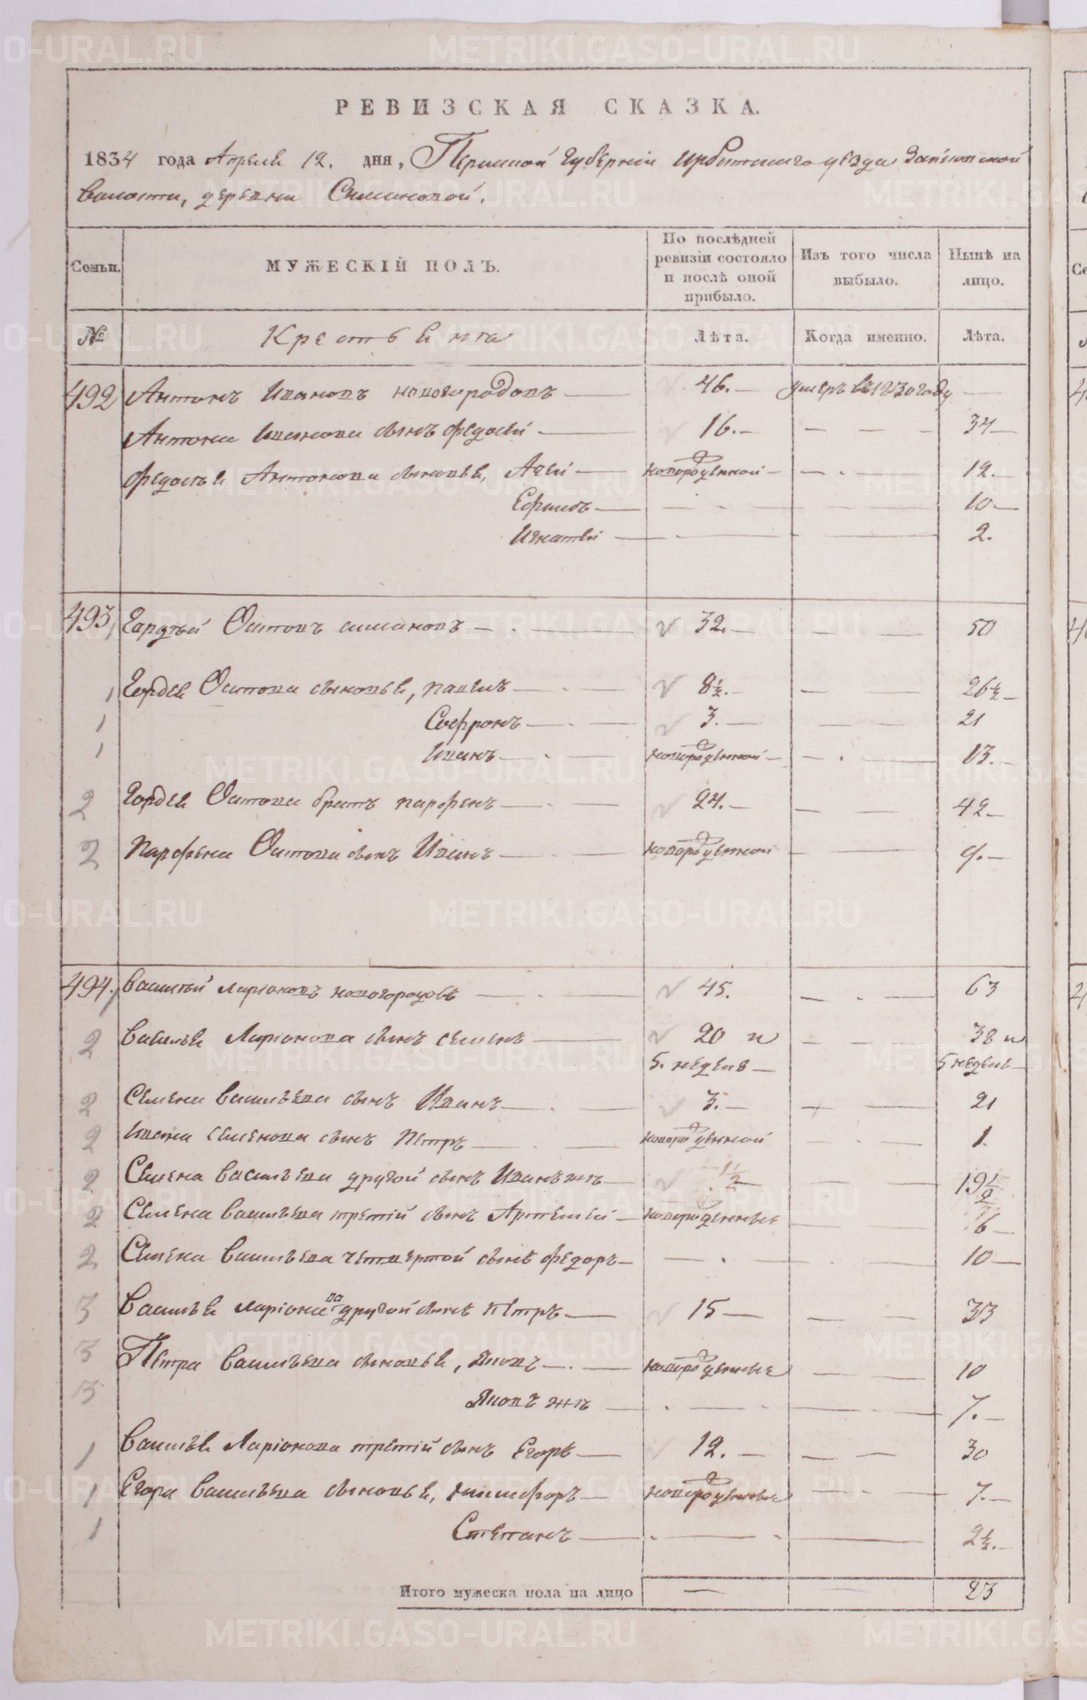 РЕВИЗСКАЯ СКАЗКА.
1834 года Апреля 12. дня, Пермской губернии Ирбитского уезда
волости, деревни Симановой.
Семьи. МУЖЕСКІЙ ПОЛЪ. По послѣдней ревизіи состояло и послѣ оной прибыло. Изъ того числа выбыло. Нынѣ на лицо.
№ Крестьяне Лѣта. Когда именно. Лѣта.
492 Антонъ Ивановъ новогородовъ 46. умеръ въ 1830 году
Антона Иванова сынъ федосей 16. 34
федосѣя Антонова сыновья, Авей новорожденной 12.
Ефимъ 10
Игнатей 2.
493, Гордѣй Осиповъ симановъ 32. 50
1 Гордея Осипова сыновья, павелъ 8½. 26½
1 Софронъ 3. 21
1 Иванъ новорожденной 13.
2 Гордея Осипова братъ парфенъ 24. 42
2 Парфена Осипова сынъ Иванъ новорожденной 9.
494. Василей Ларіоновъ новогородовъ 45. 63
2 Василья Ларіонова сынъ семенъ 20 и 38 и
5. неделѣ 5 неделѣ
2 Семена Васильева сынъ Иванъ 3. 21
2 Ивана Семенова сынъ Петръ новорожденной 1.
2 Семена Васильева другой сынъ Иванъ жъ 1½ 19½
2 Семена Васильева третій сынъ Артемей новорожденные 6
2 Семена Васильева четвертой сынъ федоръ 10
3 Василья Ларіонова другой сынъ Петръ 15 33
3 Петра Васильева сыновья, Яковъ новорожденные 10
3 Яковъ жъ 7.
1 Василья Ларіонова третій сынъ Егоръ 12. 30
1 Егора Васильева сыновья, никифоръ новорожденные 7.
1 Степанъ 2½.
Итого мужеска пола на лицо 23
METRIKI.GASO-URAL.RU